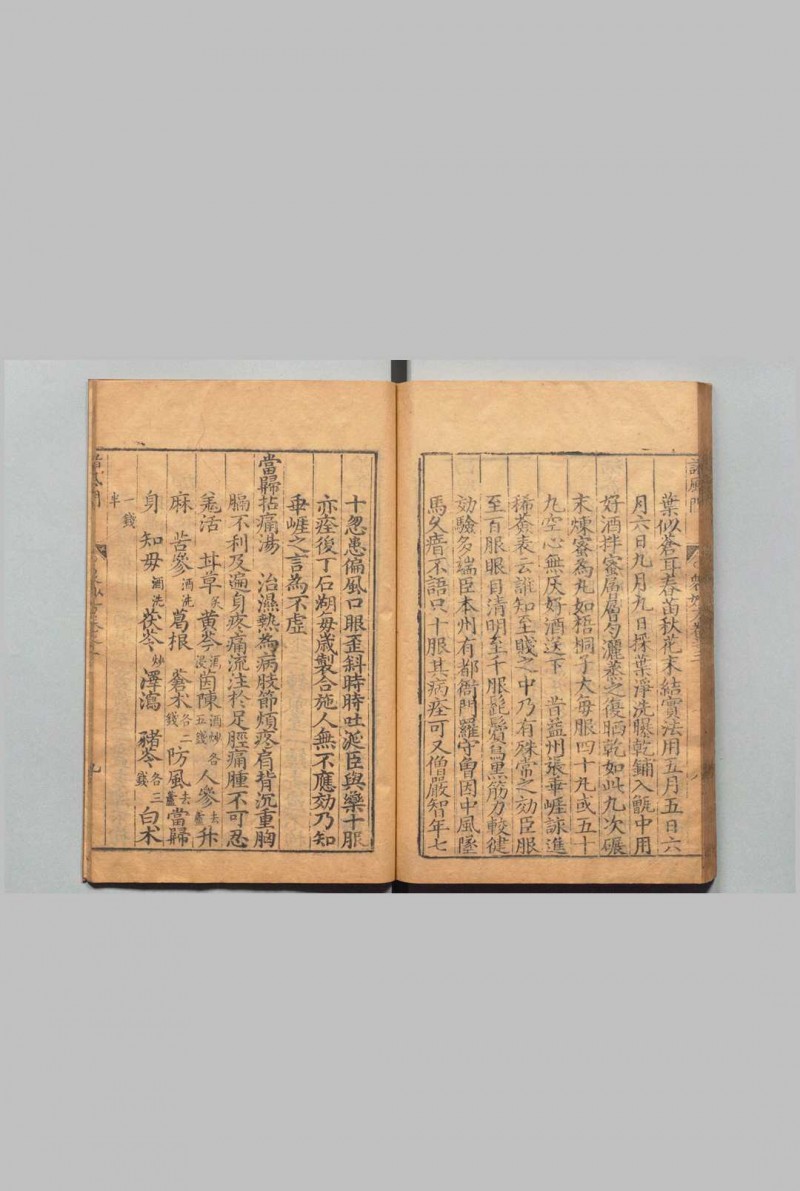 諸風門
葉似蒼耳春苗秋花末結實法用五月五日六
月六日九月九日採葉淨洗曝乾鋪入甑中用
好酒拌蜜層層勻灑蒸之復晒乾如此九次碾
末煉蜜為丸如梧桐子大每服四十丸或五十
丸空心無灰好酒送下　昔益州張垂崖詠進
稀薟表云誰知至賤之中乃有殊常之効臣服
至百服眼目清明至千服髭鬢烏黑筋力較健
効驗多端臣本州有都衙門羅守曾因中風墜
馬失瘖不語只十服其病痊可又僧嚴智年七
十忽患偏風口眼歪斜時時吐涎臣與藥十服
亦痊後丁石湖每歲製合施人無不應効乃知
垂崖之言為不虛
當歸拈痛湯　治濕熱為病肢節煩疼肩背沉重胸
膈不利及遍身疼痛流注於足脛痛腫不可忍
羗活　甘草炙　黃芩酒浸　茵陳酒炒各五錢　人參去蘆　升
麻　苦參酒洗　葛根　蒼朮各二錢　防風去蘆　當歸
身　知母酒洗　茯苓　澤瀉　豬苓各三錢　白朮
一錢半
九